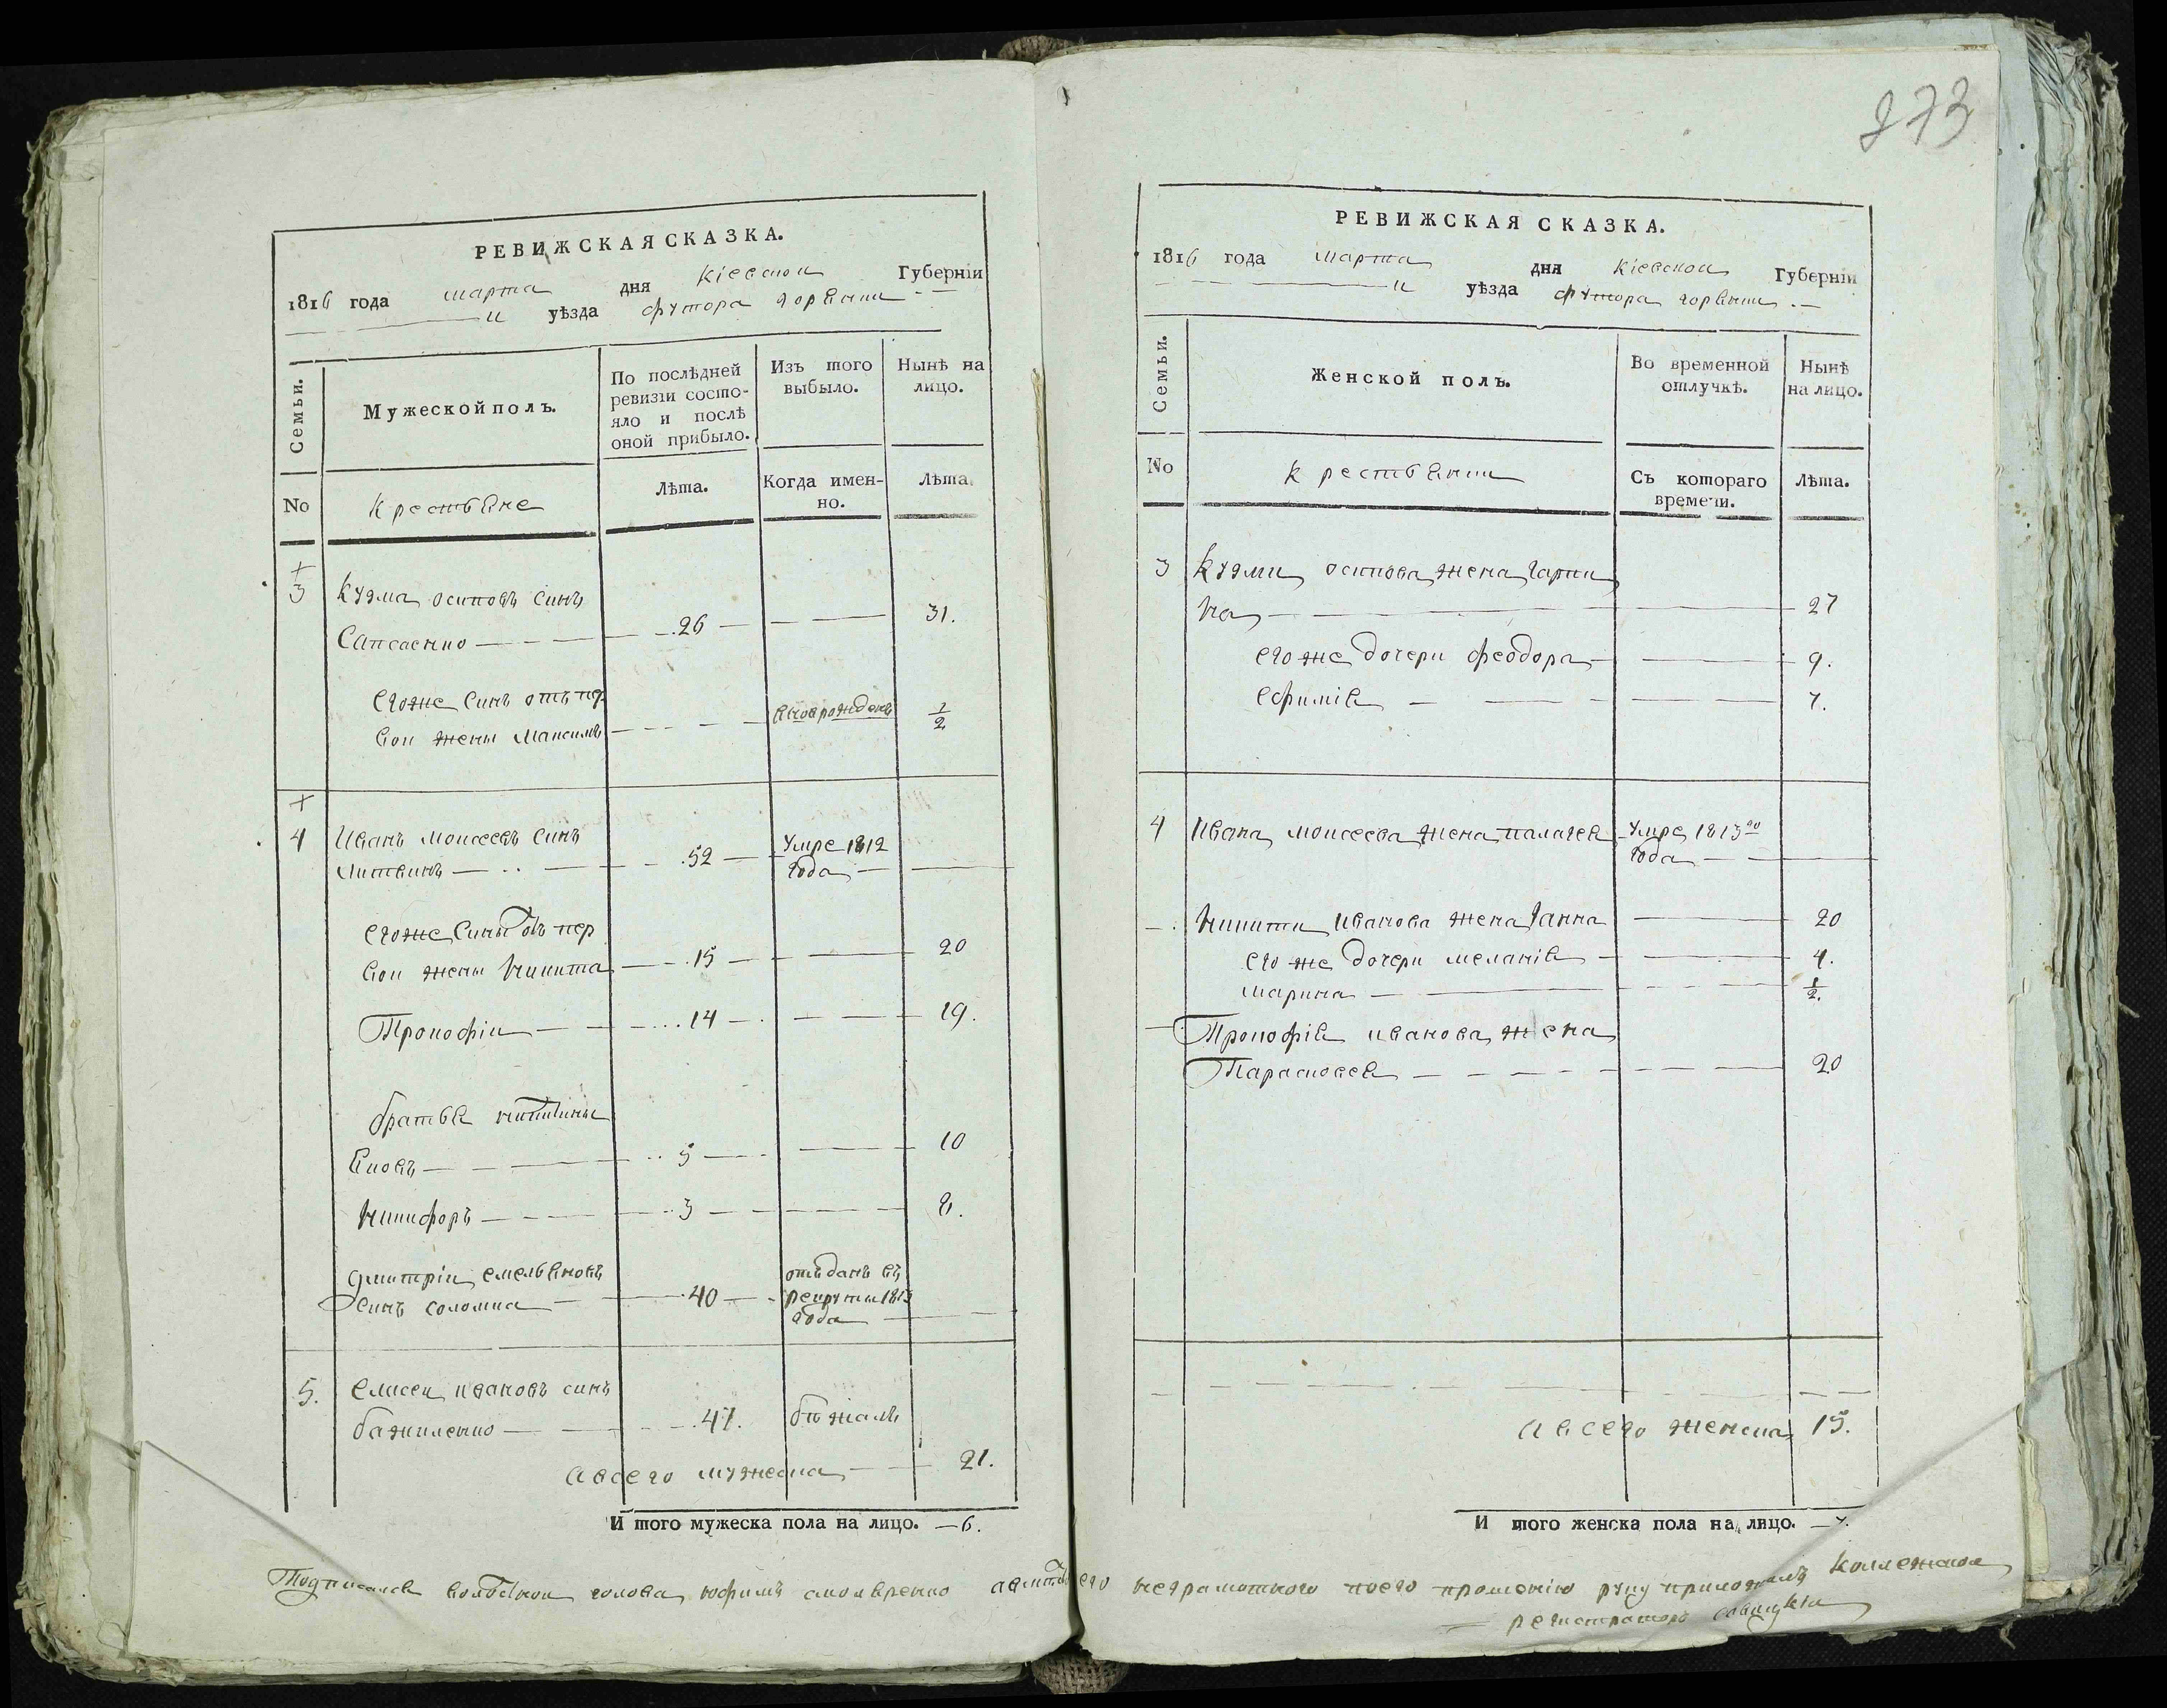 РЕВИЖСКАЯ СКАЗКА.
1816 года марта дня Кіевской Губерніи
и уѣзда футора горѣнки
Семьи.
Мужеской полъ.
По послѣдней
ревизіи состо-
яло и послѣ
оной прибыло.
Изъ того
выбыло.
Нынѣ на
лицо.
No
крестьяне
Лѣта.
Когда имен-
но.
Лѣта.
3 Кузма осиповъ синъ
26 31.
Егоже синъ отъ пер
вои жены Максимъ новорожденъ 1/2
4 Иванъ моисеевъ синъ
Литвинъ 52 Умре 1812
года
Егоже сины отъ пер
вои жены Никита 15 20
Прокофіи 14 19.
братья никитины
Яковъ 5 10
Никифоръ 3 8.
Дмитріи емельяновъ
синъ соломка 40 отъданъ въ
рекруты 1813
года
5. Елисеи ивановъ синъ
бажиленко 47. бѣжалъ
а всего мужеска 21.
И того мужеска пола на лицо. 6.
273
РЕВИЖСКАЯ СКАЗКА.
1816 года марта дня Кіевской Губерніи
и уѣзда футора горѣнки
Семьи.
Женской полъ.
Во временной
отлучкѣ.
Нынѣ
на лицо.
No
крестьянки
Съ котораго
времени.
Лѣта.
3 Кузми осипова жена гапки
на 27
его же дочери феодора 9.
ефимія 7.
4 Ивана моисеева жена палагея Умре 1813го
года
Никити иванова жена ганна 20
его же дочери меланія 4.
марина 1/2.
Прокофія иванова жена
Парасковея 20
а всего женска 15.
И того женска пола на лицо. 7.
Подписалъ голова юфимъ а вмѣсто его неграмотного по его прошенію руку приложилъ Коллежской
регистраторъ